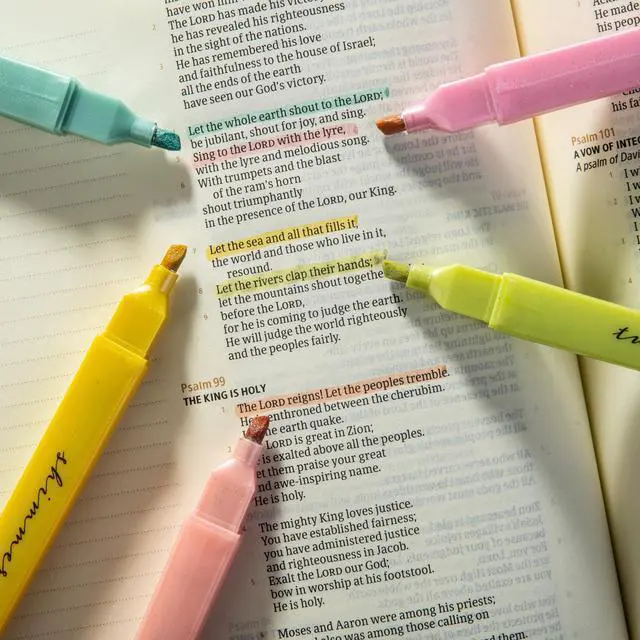 have won him victory
The LORD has made his victory
he has revealed his righteousness
in the sight of the nations.
3
He has remembered his love
and faithfulness to the house of Israel;
all the ends of the earth
have seen our God's victory.
4
Let the whole earth shout to the LORD;
be jubilant, shout for joy, and sing.
5
Sing to the LORD with the lyre,
with the lyre and melodious song.
6
With trumpets and the blast
of the ram's horn
shout triumphantly
in the presence of the LORD, our King.
7
Let the sea and all that fills it,
the world and those who live in it,
resound.
8
Let the rivers clap their hands;
let the mountains shout together
before the LORD,
for he is coming to judge the earth.
He will judge the world righteously
and the peoples fairly.
Psalm 99
THE KING IS HOLY
1
The LORD reigns! Let the peoples tremble.
He enthroned between the cherubim.
the earth quake.
LORD is great in Zion;
is exalted above all the peoples.
them praise your great
and awe-inspiring name.
He is holy.
4
The mighty King loves justice.
You have established fairness;
you have administered justice
and righteousness in Jacob.
5
Exalt the LORD our God;
bow in worship at his footstool.
He is holy.
Moses and Aaron were among his priests;
also was among those calling on
them.
He made
his people
Psalm 101
A VOW OF
A psalm of
shimmer